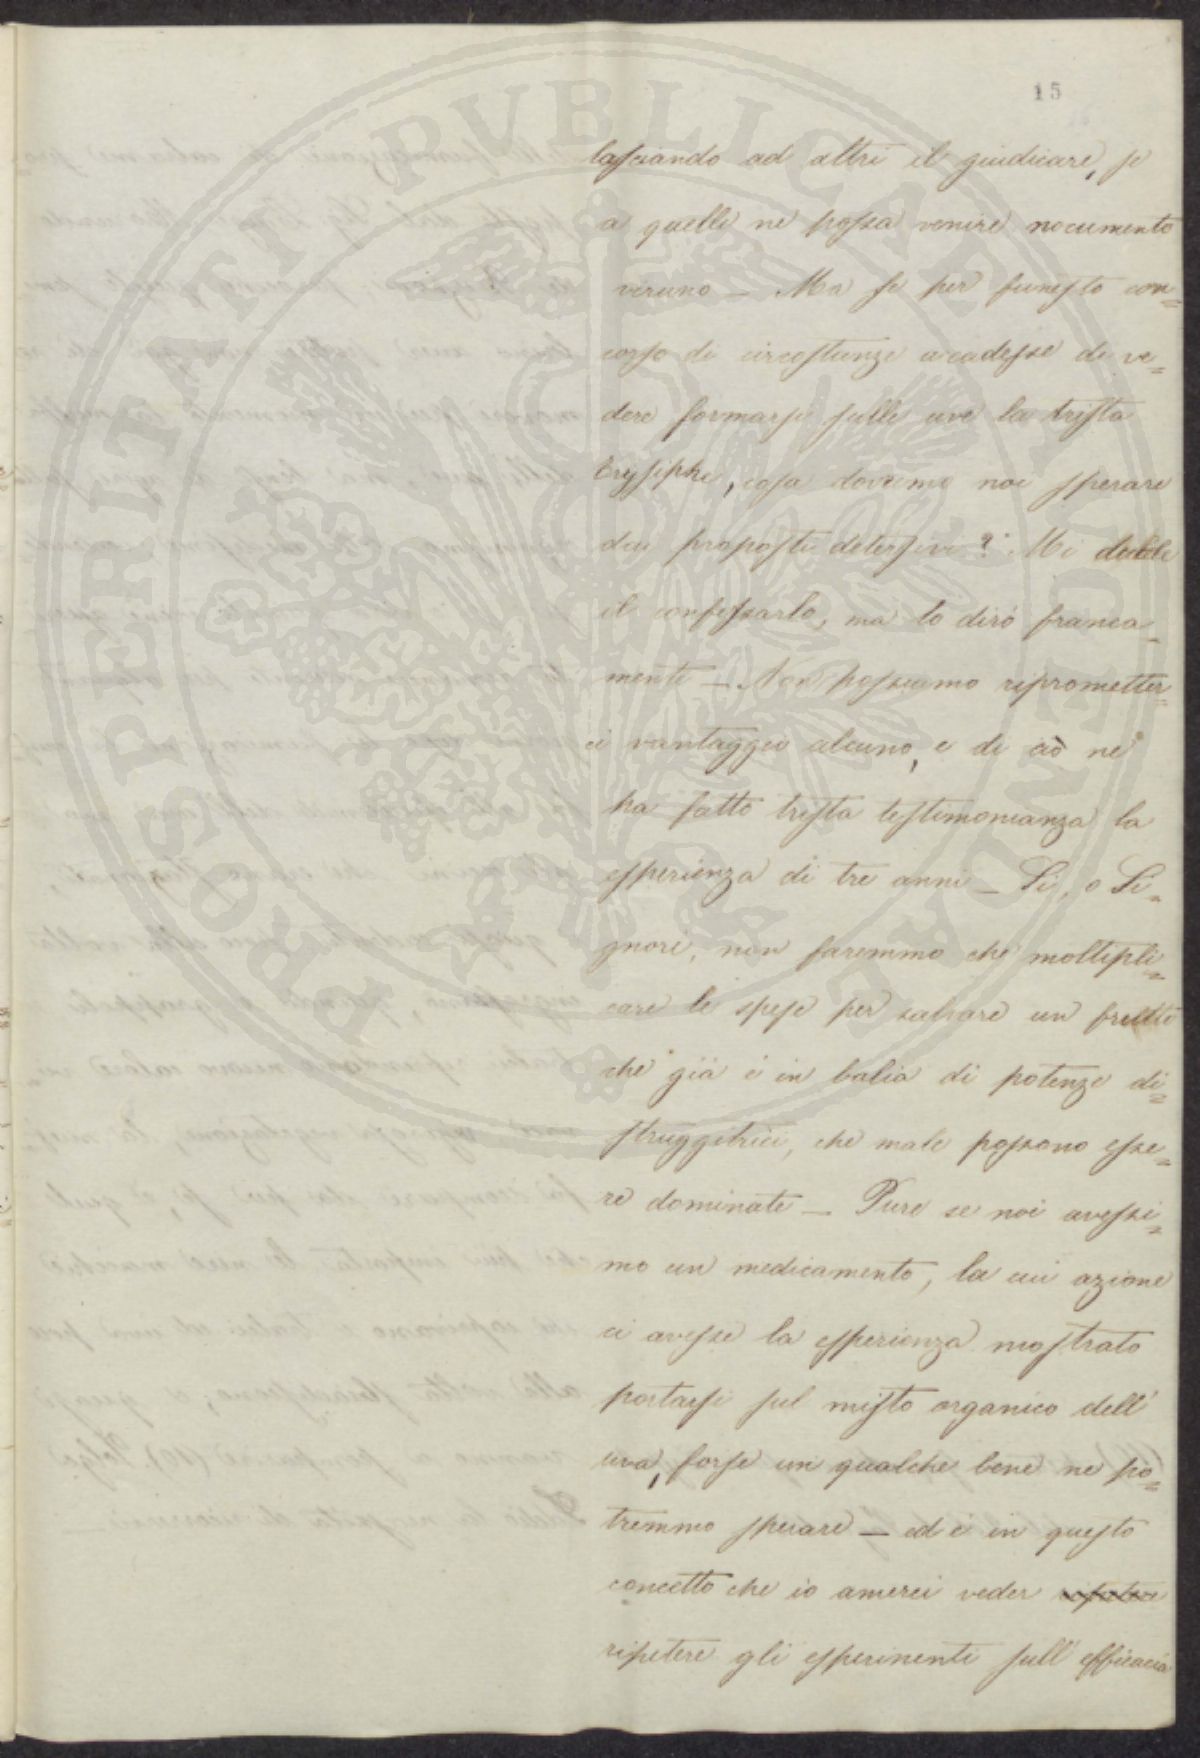 15
lasciando ad altri il giudicare, se
a quelle ne possa venire nocumento
veruno – Ma se per funesto con=
corso di circostanze accadesse di ve=
dere formarsi sulle uve la trista
Erysiphe, cosa dovremo noi sperare
dai proposti detersivi? Mi duole
il confessarlo, ma lo dirò franca=
mente – Non possiamo riprometter=
ci vantaggio alcuno, e di ciò ne
ha fatto trista testimonianza la
esperienza di tre anni – Si, o Si=
gnori, non faremmo che moltipli=
care le spese per salvare un frutto
che già è in balia di potenze di=
struggitrici, che male possono esse=
re dominate – Pure se noi avessi=
mo un medicamento, la cui azione
ci avesse la esperienza mostrato
portarsi sul misto organico dell'
uva, forse un qualche bene ne po=
tremmo sperare – ed è in questo
concetto che io amerei veder
ripetere gli esperimenti sull'efficacia
PROSPERITATI PVBLICAE AVGENDAE